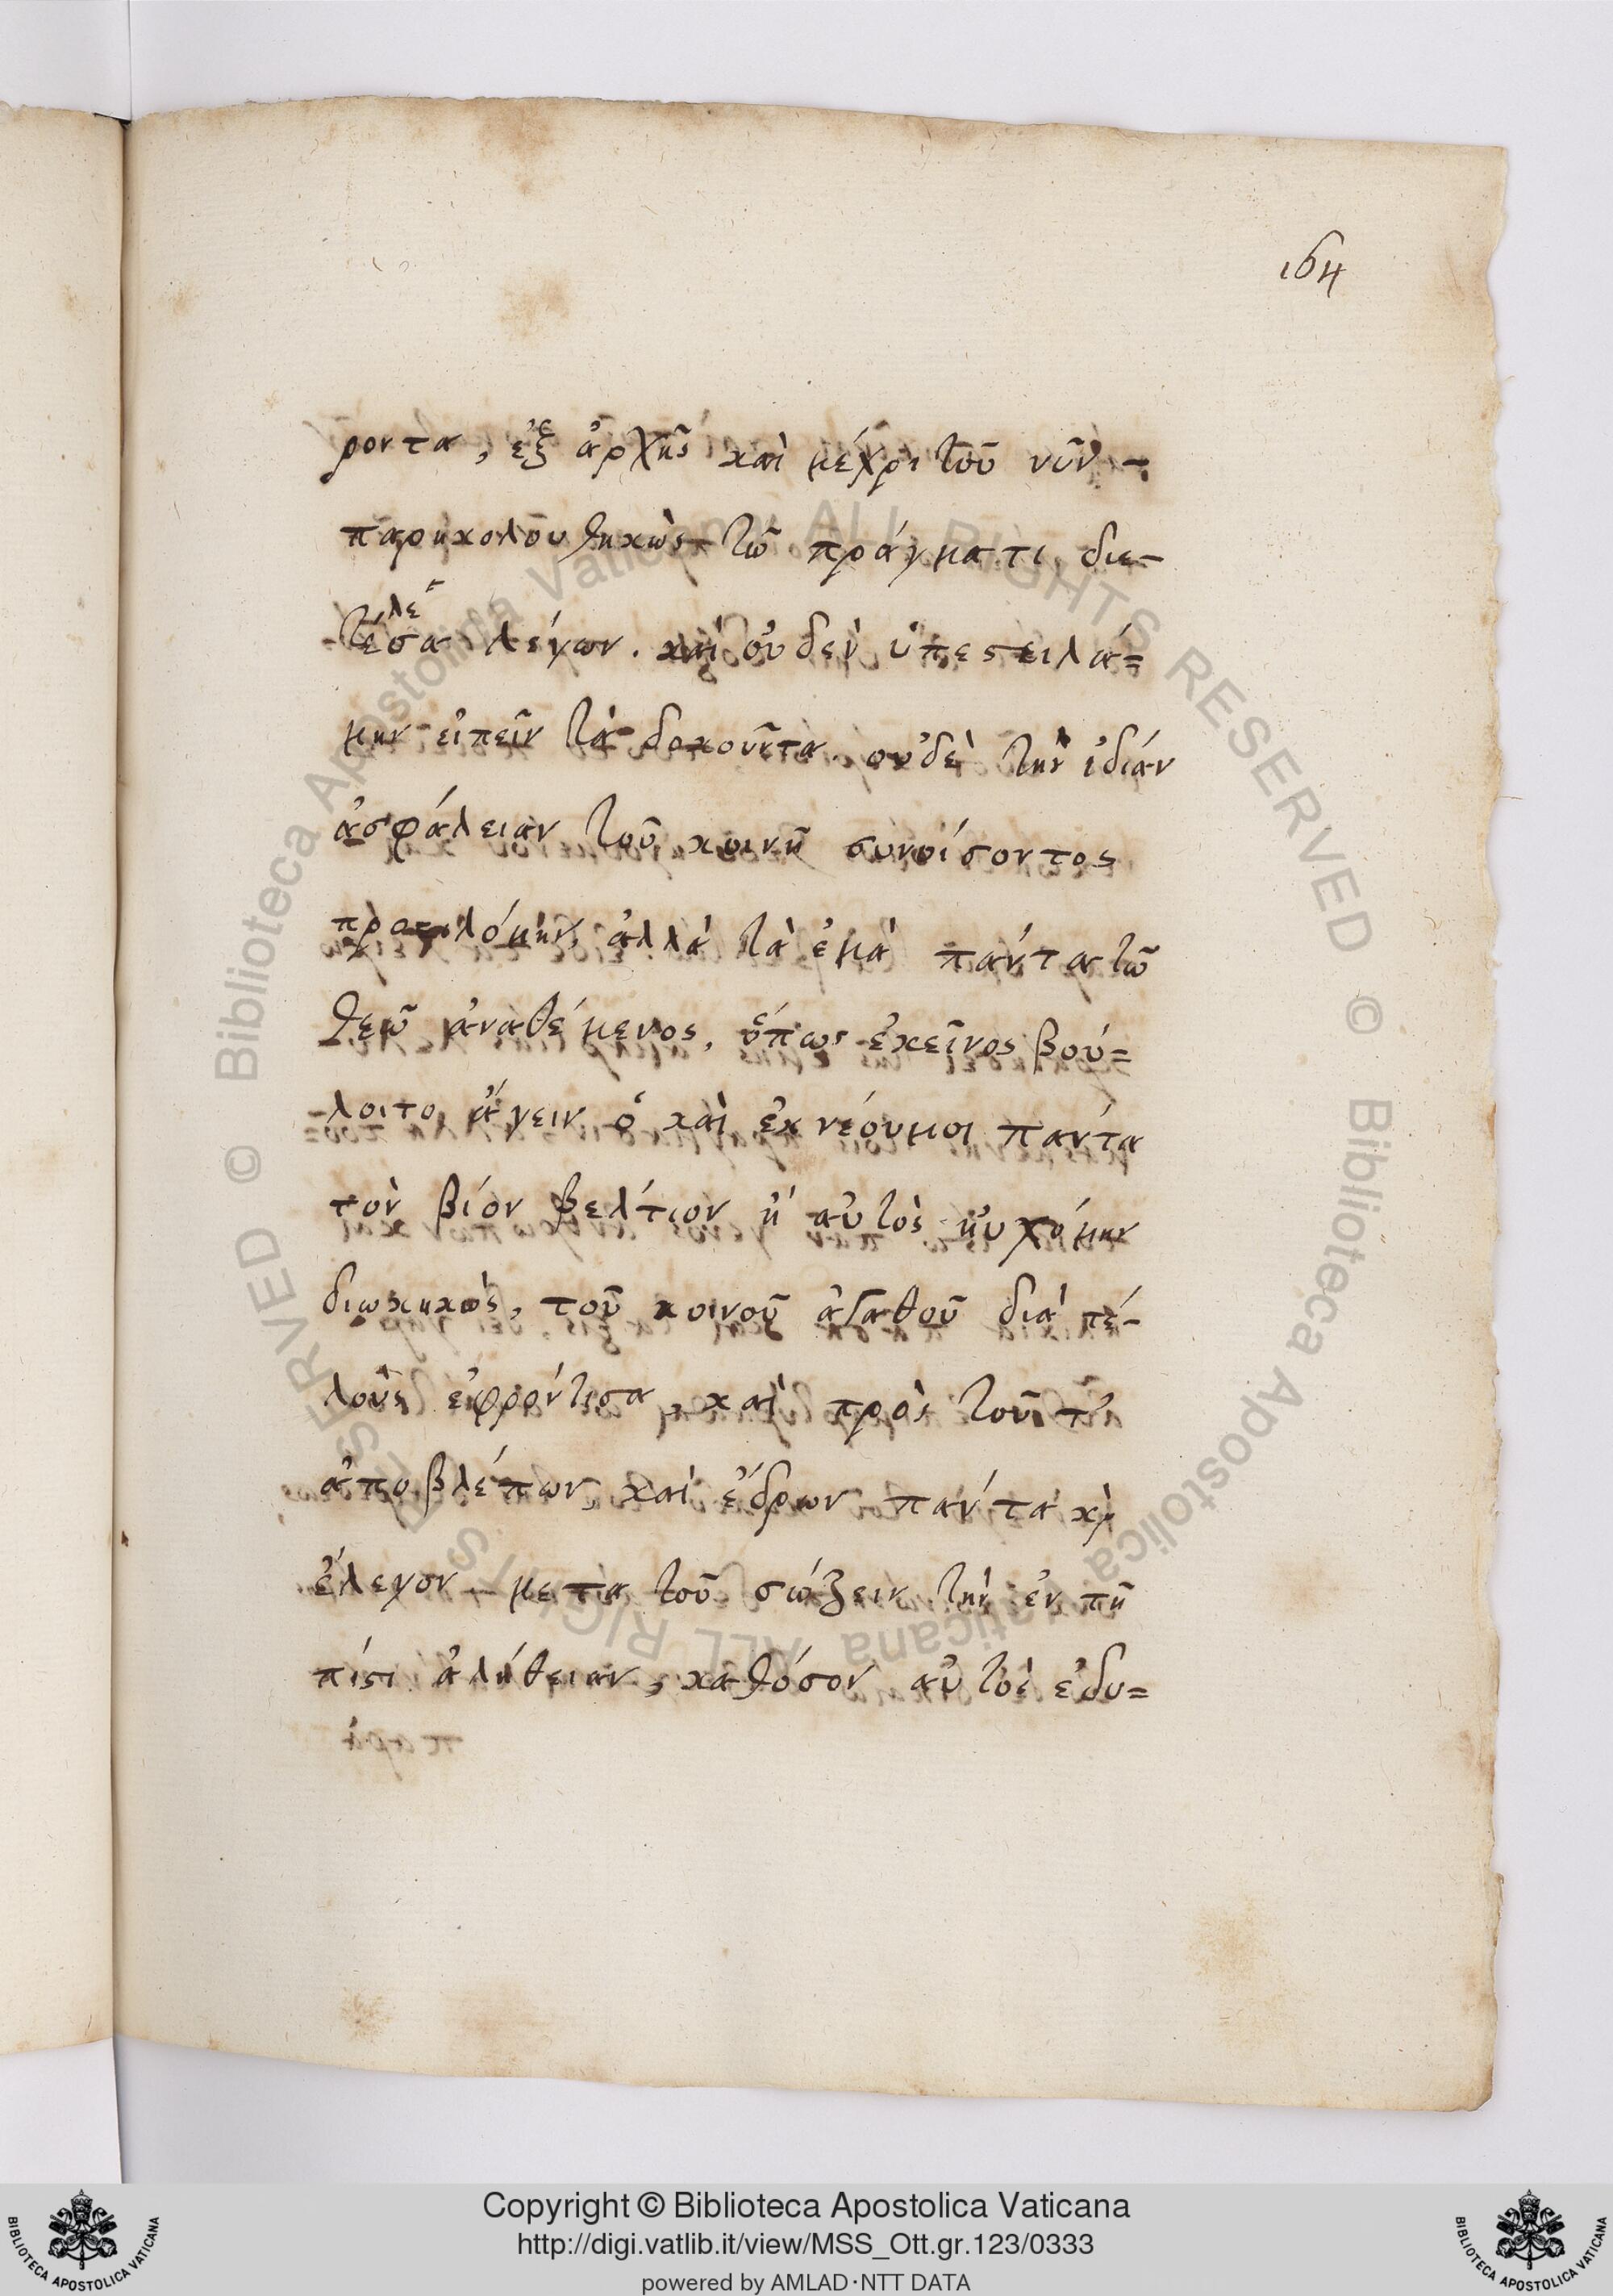 164
ροντα, ἐξ ἀρχῆς καὶ μέχρι τοῦ νῦν -
παρηκολουθηκὼς τῶ πράγματι, διε-
λέ
τέσα λέγων. καὶ οὐδὲν ὑπεστειλά=
μην εἰπεῖν τὰ δοκοῦντα οὐδὲ τὴν ἰδιάν
ἀσφάλειαν τοῦ κοινῆ συνοίσοντος
προειλόμην, ἀλλὰ τὰ ἐμὰ πάντα τῶ
θεῶ ἀναθέμενος, ὅπως ἐκεῖνος βού=
λοιτο ἄγειν ὃ καὶ ἐκ νέουμοι πάντα
τὸν βίον βελτιον ἢ αὐτὸς ηὐχόμην
διωκηκὼς, τοῦ κοινοῦ ἀγαθοῦ διὰ τέ-
λους ἐφρόντισα, καὶ πρὸς τοῦτ'
ἀποβλέπων, καὶ ἔδρων πάντα κὶ
ἔλεγον μετα τοῦ σώζειν τὴν ἐν τῆ
πίστι ἀλήθειαν, καθόσον αὐτὸς ἐδυ=
© Biblioteca Apostolica Vaticana ALL RIGHTS RESERVED © Biblioteca Apostolica Vaticana ALL RIGHTS RESERVED
Copyright © Biblioteca Apostolica Vaticana
http://digi.vatlib.it/view/MSS_Ott.gr.123/0333
powered by AMLAD·NTT DATA
BIBLIOTECA APOSTOLICA VATICANA
BIBLIOTECA APOSTOLICA VATICANA